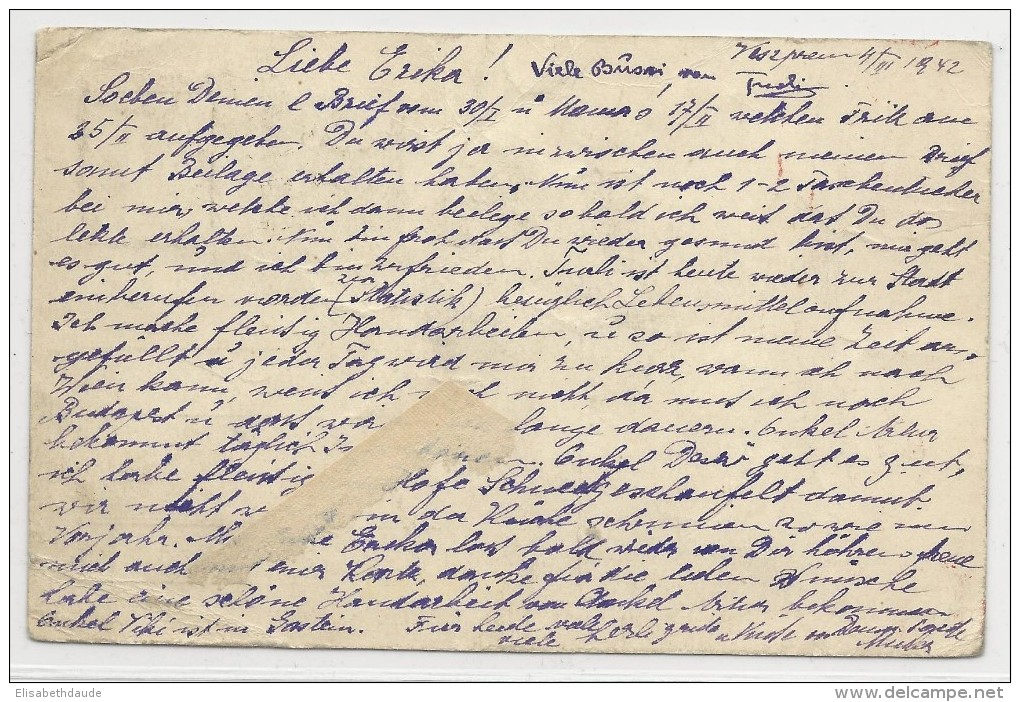 Veszprem 4/III 1942
Liebe Erika! Viele Bussi von Trudi
Soeben Deinen l Brief vom 30/I u Mamas 17/II welchen Fritz am
25/II aufgegeben. Du wirst ja inzwischen auch meinen Brief
samt Beilage erhalten haben, Nun ist noch 1-2 Taschentücher
bei mir, welche ich dann beilege sobald ich weis das Du das
letzte erhalten. Nun bin froh dast Du wieder gesund bist, mir geht
es gut, und ich bin zufrieden. Trudi ist heute wieder zur Stadt
einberufen worden (zur Statistik) bezüglich Lebensmittelaufnahme.
Ich mache fleisig Handarbeiten, u so ist meine Zeit aus-
gefüllt u jeder Tag wird mir zu kurz, wann ich nach
Wien kann, weis ich nicht, da mus ich nach
Budapest u dort lange dauern. Onkel Artur
bekommt täglich Onkel Desiö geht es gut,
ich habe fleisig Hofe Schnee geschaufelt damit
wir nicht in der Küche schwimmen so wie im
Vorjahr. Erika las bald wieder von Dir hören, freue
mich auch mit einer Karte, danke für die lieben Wünsche
habe eine schöne Handarbeit von Onkel Artur bekommen
Onkel Viki ist in Gastein. Für heute viele herzl grüße u Küsse von Deiner
viele
Elisabethdaude
www.delcampe.net